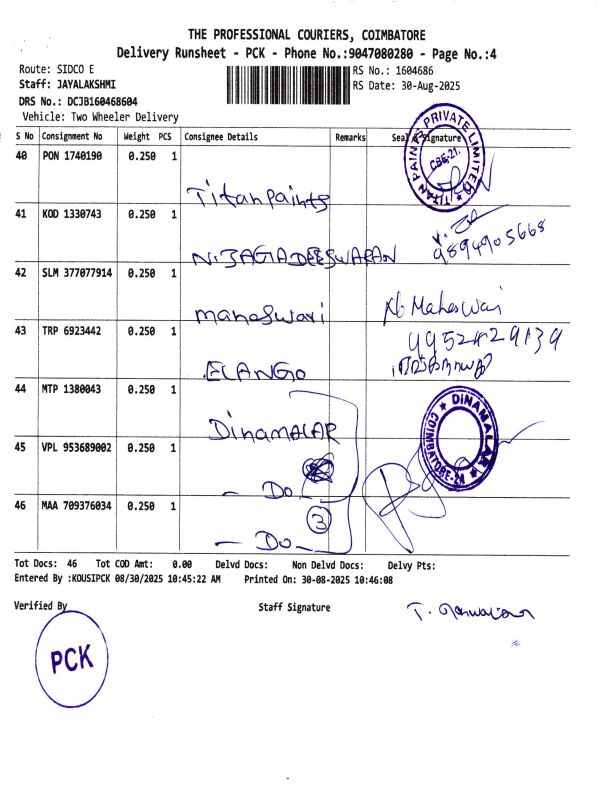 THE PROFESSIONAL COURIERS, COIMBATORE
Delivery Runsheet - PCK - Phone No.:9047080280 - Page No.:4
Route: SIDCO E RS No.: 1604686
Staff: JAYALAKSHMI RS Date: 30-Aug-2025
DRS No.: DCJB160468604
Vehicle: Two Wheeler Delivery
S No Consignment No Weight PCS Consignee Details Remarks Seal & Signature
TITAN PAINTS PRIVATE LIMITED
CBE-21.
40 PON 1740190 0.250 1
Titan Paints
41 KOD 1330743 0.250 1
9894905668
N. JAGADEESWARAN
42 SLM 377077914 0.250 1
Maheswari N. Maheswari
43 TRP 6923442 0.250 1
9952429139
ELANGO
44 MTP 1380043 0.250 1
DINAMALAR
COIMBATORE-21
Dinamalar
45 VPL 953689002 0.250 1
- Do -
46 MAA 709376034 0.250 1
3
- Do -
Tot Docs: 46 Tot COD Amt: 0.00 Delvd Docs: Non Delvd Docs: Delvy Pts:
Entered By :KOUSIPCK 08/30/2025 10:45:22 AM Printed On: 30-08-2025 10:46:08
Verified By Staff Signature
PCK